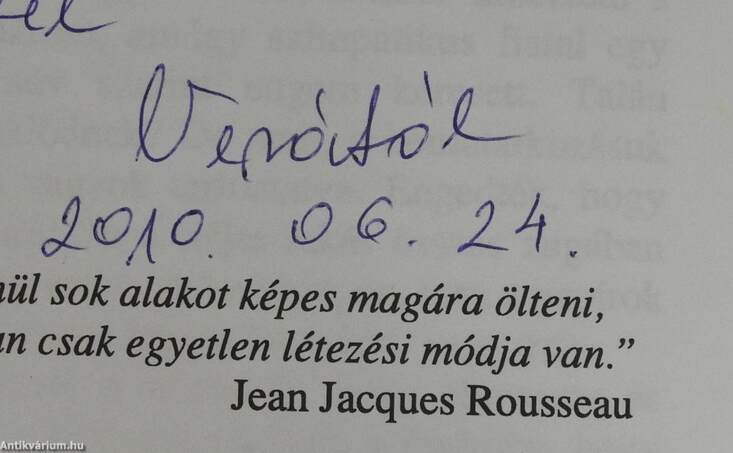 el
Verától
2010. 06. 24.
nül sok alakot képes magára ölteni,
an csak egyetlen létezési módja van.”
Jean Jacques Rousseau
Antikvárium.hu